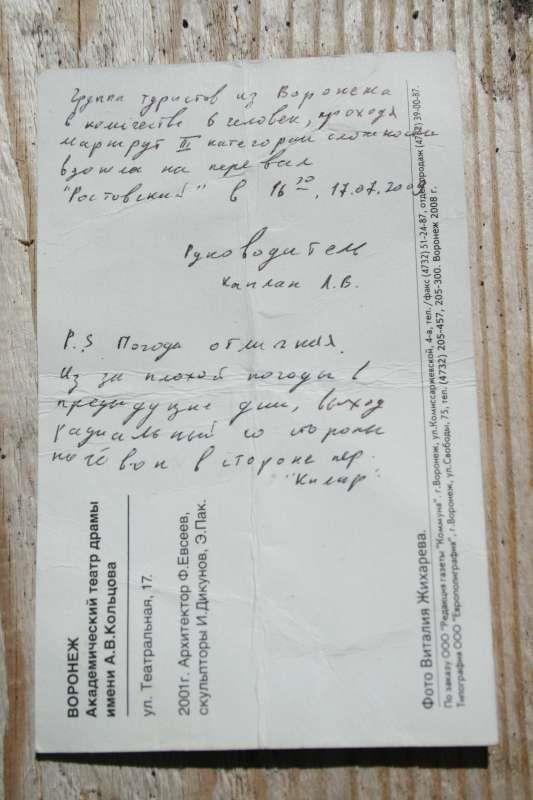 Группа туристов из Воронежа
в количестве 6 человек, проходя
маршрут III категории сложности
взошла на перевал
"Ростовский" в 16 20, 17.07.200
Руководитель
Каплан А.В.
P.S Погода отличная.
Из за плохой погоды в
предыдущие дни, выход
радиальный со стороны
в стороне пер.
ВОРОНЕЖ
Академический театр драмы
имени А.В.Кольцова
ул. Театральная, 17.
2001г. Архитектор Ф.Евсеев,
скульпторы И.Дикунов, Э.Пак.
Фото Виталия Жихарева.
По заказу ООО "Редакция газеты "Коммуна", г.Воронеж, ул.Комиссаржевской, 4-а, тел./факс (4732) 51-24-87, отдел продаж (4732) 39-00-87.
Типография ООО "Европолиграфия", г.Воронеж, ул.Свободы, 75, тел. (4732) 205-457, 205-300. Воронеж 2008 г.